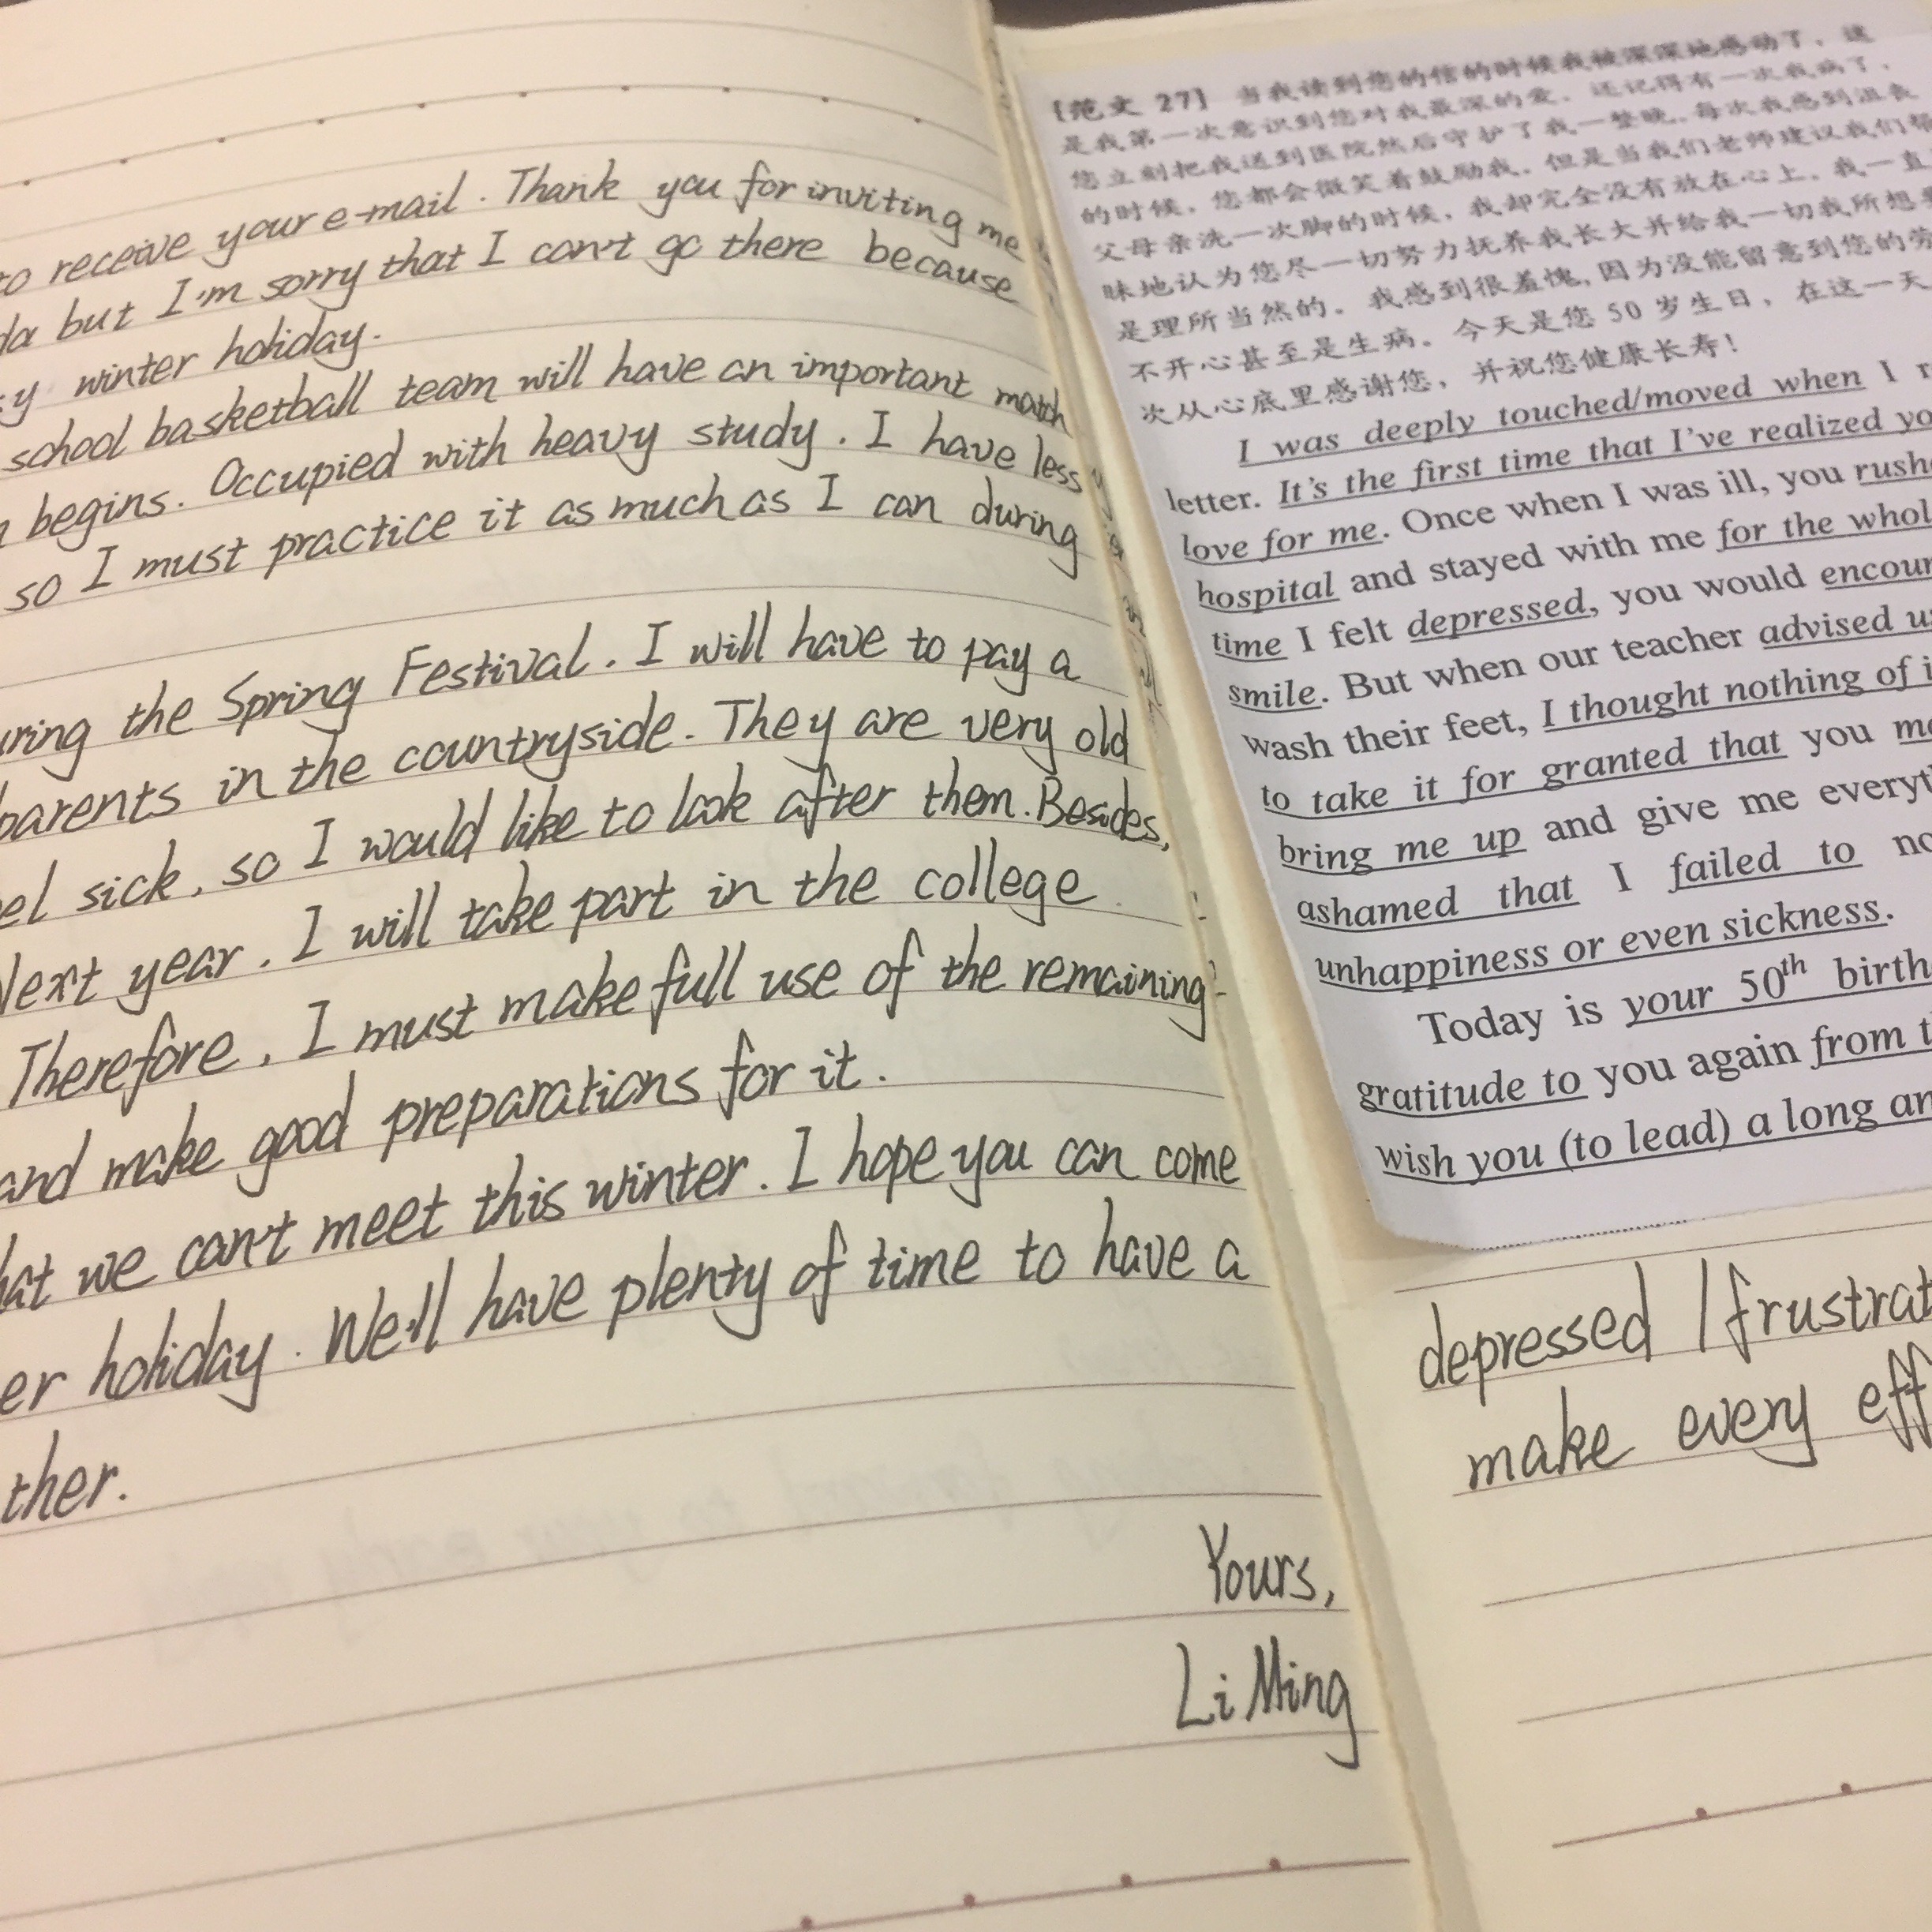 to receive your e-mail. Thank you for inviting me
da but I'm sorry that I can't go there because
winter holiday.
school basketball team will have an important match
begins. Occupied with heavy study. I have less
so I must practice it as much as I can during
uring the Spring Festival. I will have to pay a
parents in the countryside. They are very old
el sick, so I would like to look after them. Besides,
Next year, I will take part in the college
Therefore, I must make full use of the remaining
and make good preparations for it.
hat we can't meet this winter. I hope you can come
er holiday. We'll have plenty of time to have a
ther.
Yours,
Li Ming
[范文 27] 当我读到您的信的时候我被深深地感动了，这
是我第一次意识到您对我最深的爱。还记得有一次我病了，
您立刻把我送到医院然后守护了我一整晚。每次我感到沮丧
的时候，您都会微笑着鼓励我。但是当我们老师建议我们帮
父母亲洗一次脚的时候，我却完全没有放在心上。我一直
昧地认为您尽一切努力抚养我长大并给我一切我所想要
是理所当然的。我感到很羞愧，因为没能留意到您的劳
不开心甚至是生病。今天是您 50 岁生日，在这一天
次从心底里感谢您，并祝您健康长寿！
I was deeply touched/moved when I r
letter. It's the first time that I've realized yo
love for me. Once when I was ill, you rushe
hospital and stayed with me for the whol
time I felt depressed, you would encour
smile. But when our teacher advised u
wash their feet, I thought nothing of i
to take it for granted that you m
bring me up and give me everyt
ashamed that I failed to no
unhappiness or even sickness.
Today is your 50th birth
gratitude to you again from t
wish you (to lead) a long an
depressed / frustrat
make every eff